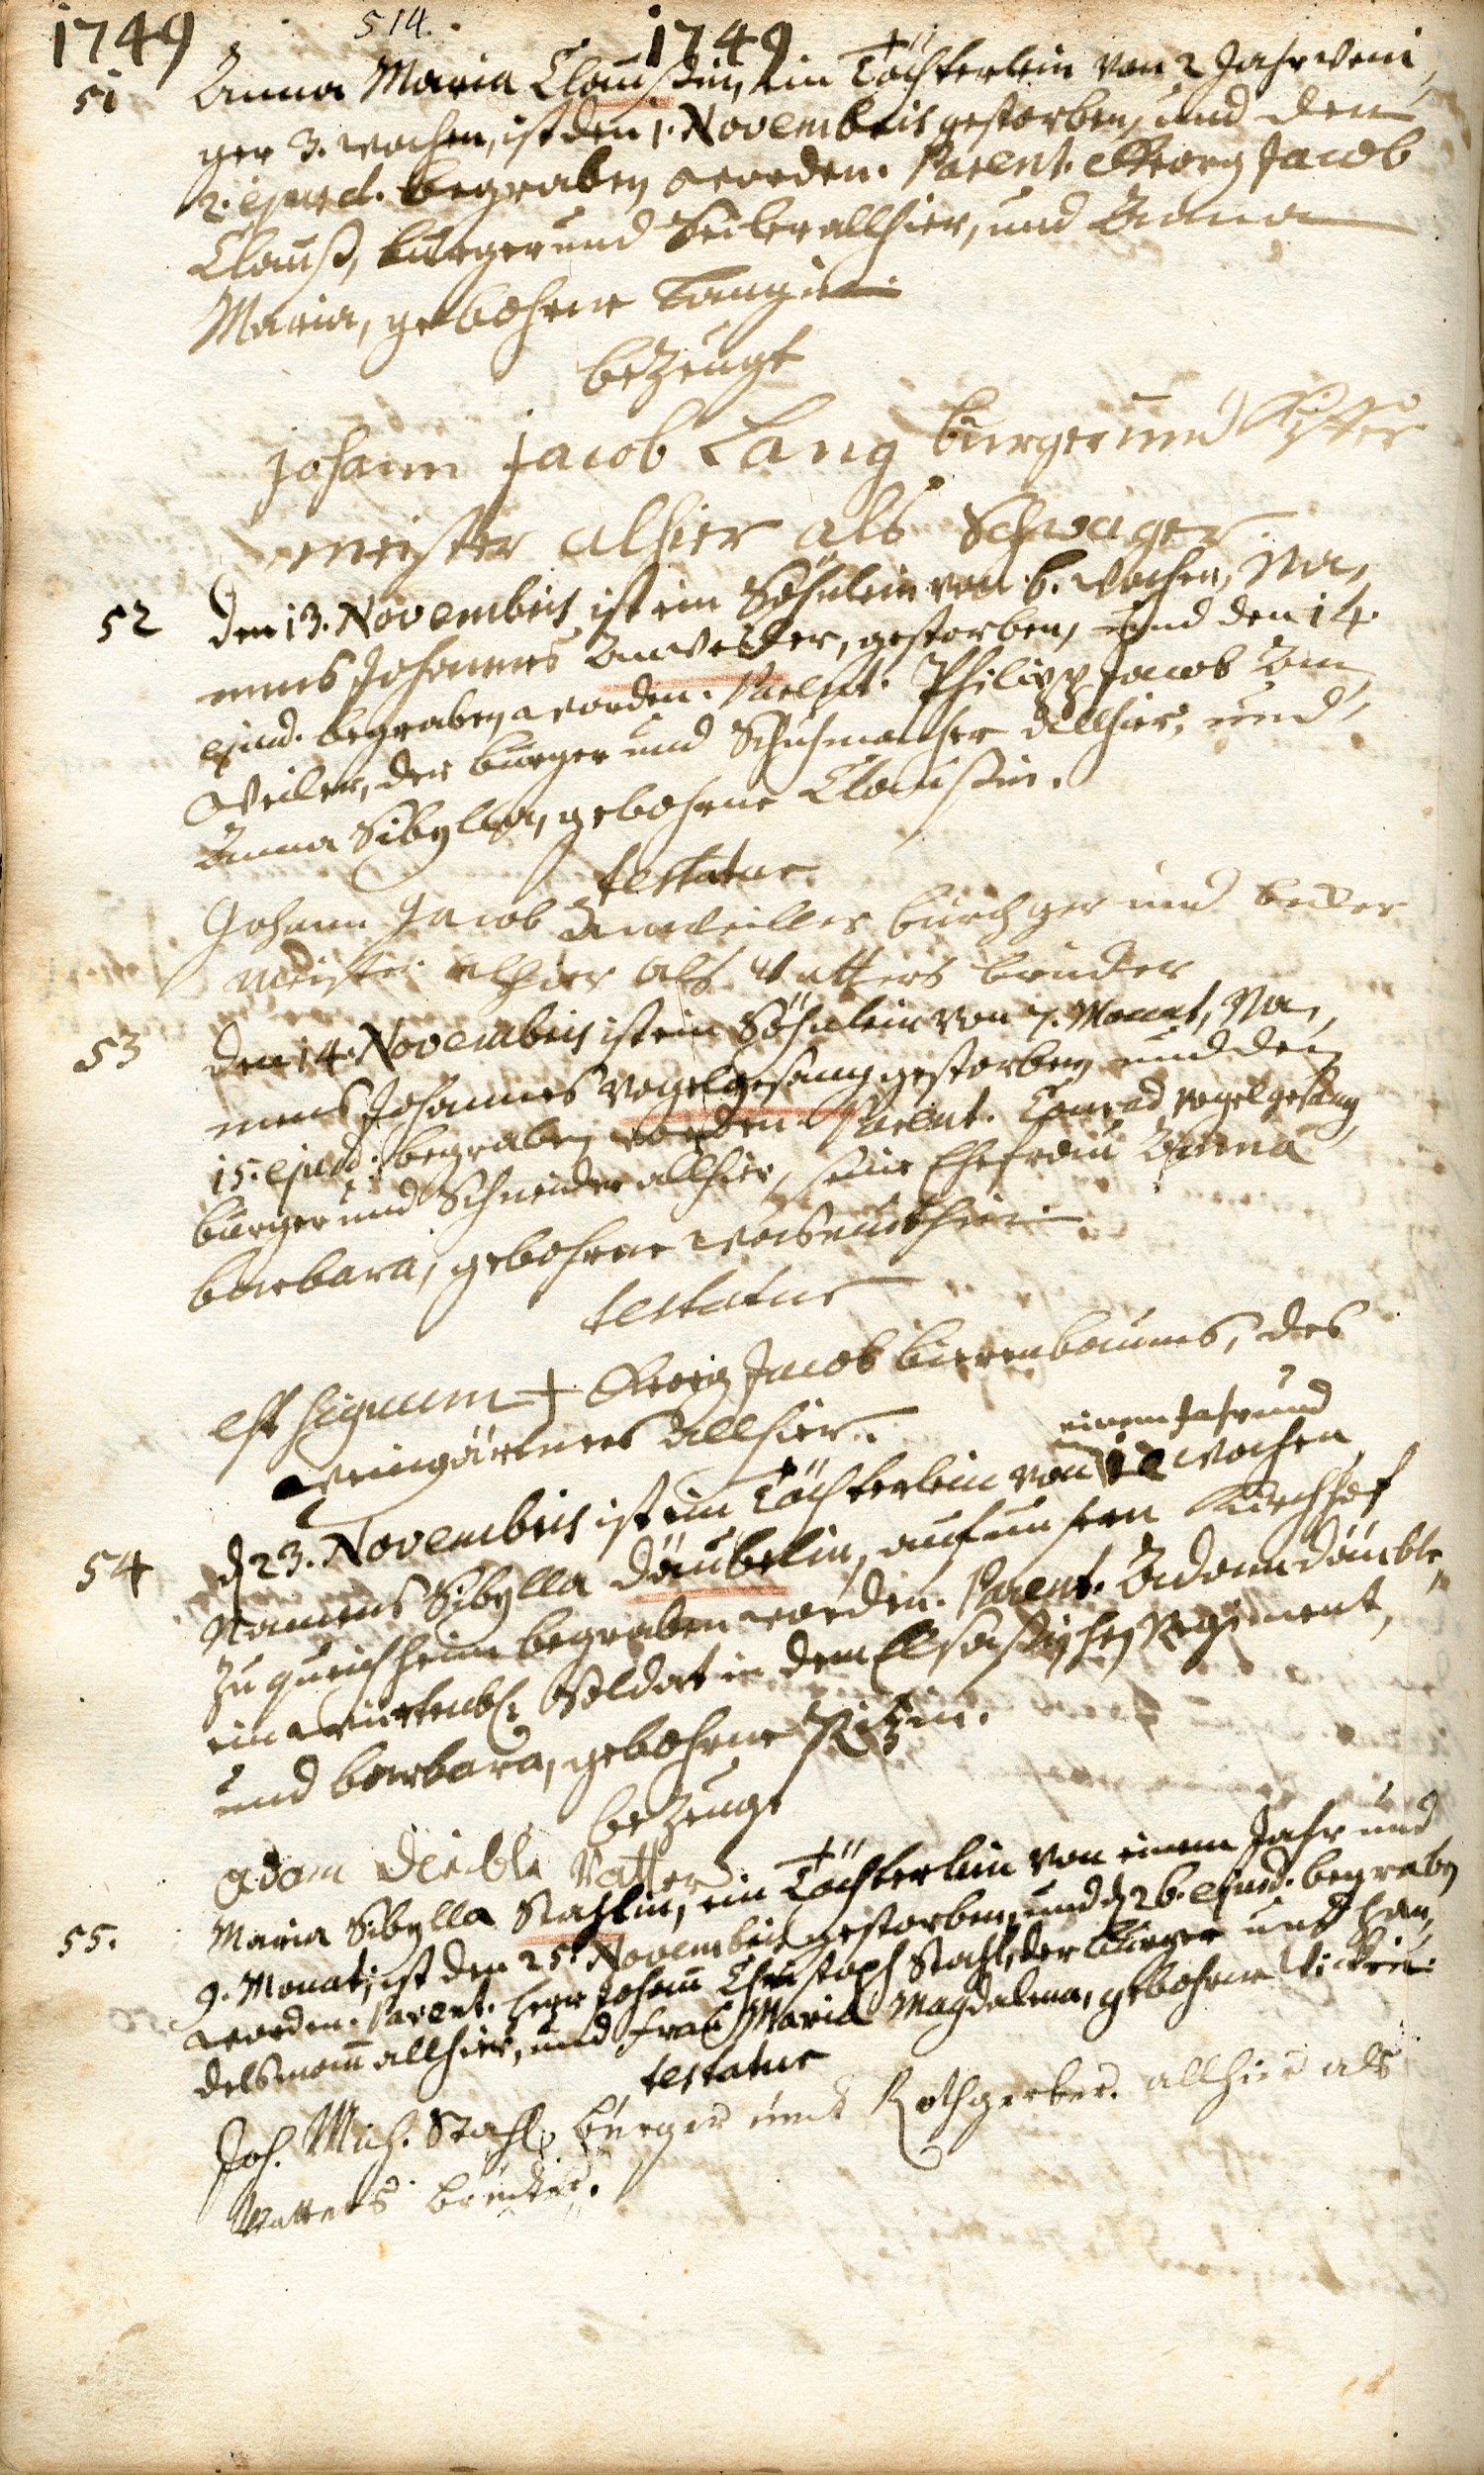 1749 514. 1749
51 Anna Maria Claußin, ein Töchterlein von 2 Jahr weni,
ger 3. wochen, ist den 1. Novembris gestorben, und den
2. ejusd. begraben worden. Parent. Georg Jacob
Clauß, burger und Seiler allhier, und Anna
Maria, gebohrne Langin.
bezeugt
johann jacob Lang burger und
meister alhier als Schwager.
52 den 13. Novembris, ist ein Söhnlein von 6. wochen, Na,
mens Johannes Anweiler, gestorben, und den 14.
ejusd. begraben worden. Parent. Philipp Jacob An,
weiler, der burger und Schuhmacher allhier, und
Anna Sibylla, gebohrne Claußin.
testatur
Johann Jacob Anweiller burchger und becker
meister alhier als Vatters bruder
53 den 14. Novembris ist ein Söhnlein von 7. Monat, Na,
mens Johannes Vogelgesang gestorben und den
15. ejusd. begraben worden. Parent. Conrad Vogelgesang,
burger und Schneider allhier, seine Ehefrau Anna
barbara, gebohrne
testatur
est signum + Georg Jacob birrenbaums, des
weingärtners allhier.
einem Jahr und
54 d 23. Novembris ist ein Töchterlein von 12 wochen
Namens Sibylla Däubelin, auf unsern Kirchhof
zu queichheim begraben worden. Parent. Adam däuble,
ein würtenb. Soldat in dem Elsasischen Regiment,
und barbara, gebohrne Ritzin.
bezeugt
adam deible Vatter
55. Maria Sibylla Stahlin, ein Töchterlein von einem Jahr und
9. Monat, ist den 25. Novembris gestorben, und d 26. ejusd. begraben
worden. Parent. herr Johann Christoph Stahl, der burger und han,
delsmann allhier, und frau Maria Magdalena, gebohrne
testatur
Joh. Mich. Stahl, burger und Rothgerber. allhier als
Vatters bruder.